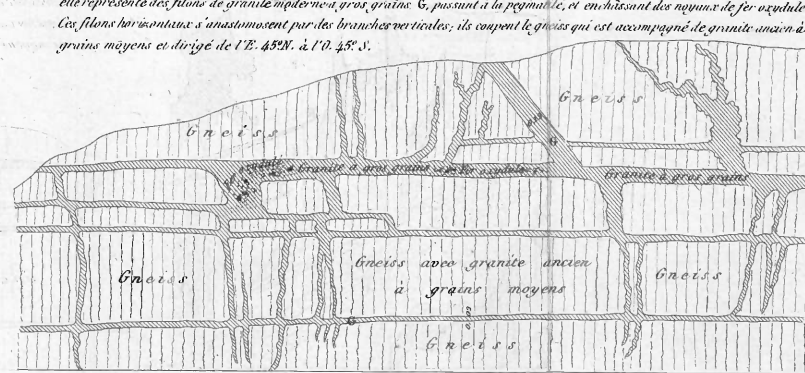 elle représente des filons de granite moderne à gros grains G, passant à la pegmatite, et enchâssant des noyaux de fer oxydulé
Ces filons horizontaux s'anastomosent par des branches verticales; ils coupent le gneiss qui est accompagné de granite ancien à
grains moyens et dirigé de l'E. 45°N. à l'O. 45°S.
Gneiss
Gneiss
G
fer oxydulé
Granite à gros grains
fer oxydulé
Granite à gros grains
Gneiss
Gneiss avec granite ancien
à grains moyens
Gneiss
G
Gneiss